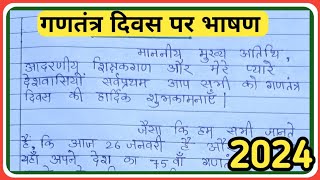 गणतंत्र दिवस पर भाषण
माननीय मुख्य अतिथि,
आदरणीय शिक्षकगण और मेरे प्यारे
देशवासियों सर्वप्रथम आप सभी को गणतंत्र
दिवस की हार्दिक शुभकामनाएँ।
जैसा कि हम सभी जानते
हैं, कि आज 26 जनवरी है और
यहाँ अपने देश का 75 वाँ गणतं
2024